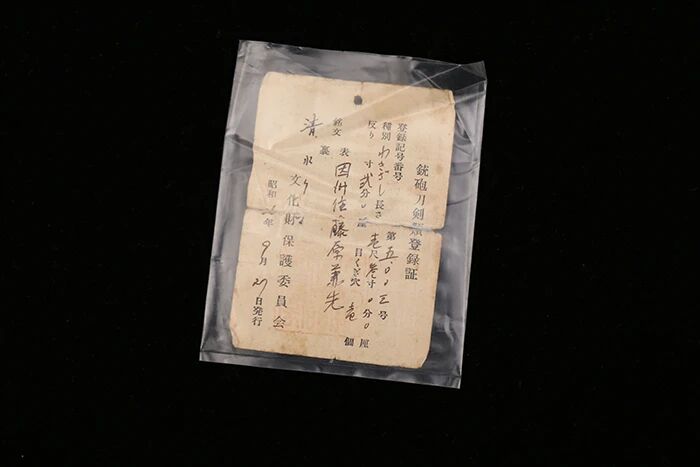 銃砲刀剣類登録証
登録記号番号 第五〇〇三号
種別 わきざし 長さ 壱尺 寸〇分〇厘
反り 寸弐分〇厘 目くぎ穴 壱個
銘文 表 因州住藤原兼先
裏
文化財保護委員会
昭和 年9月27日発行